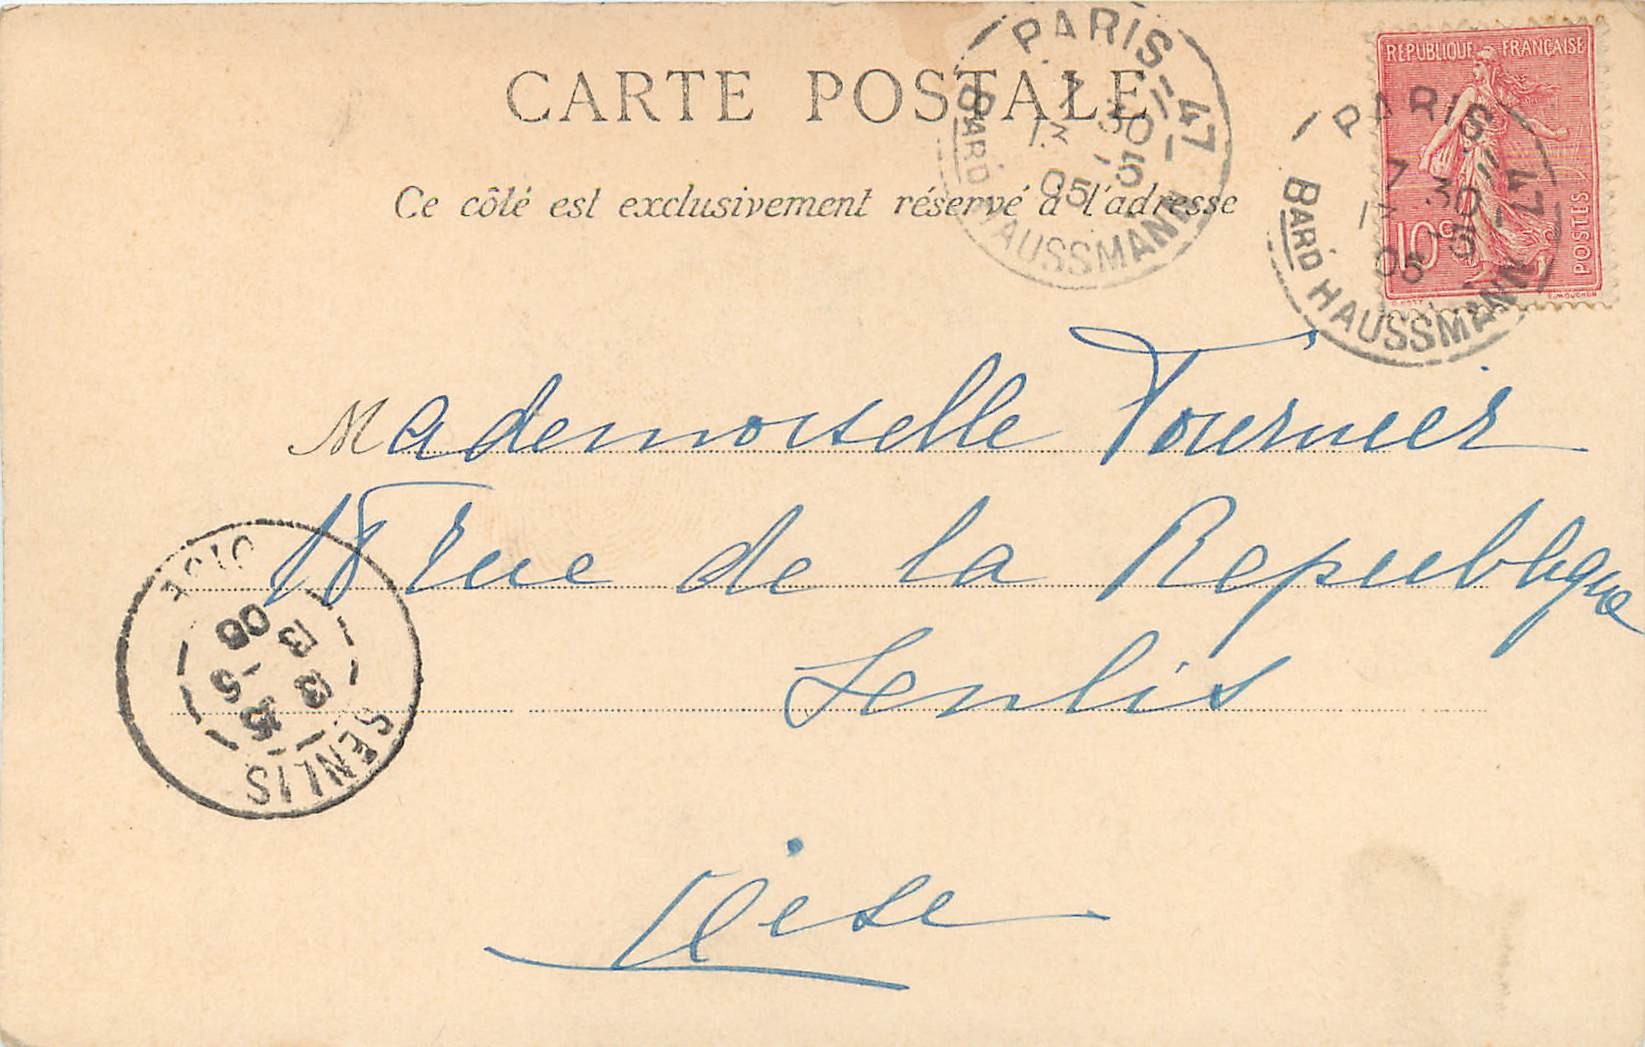 CARTE POSTALE
Ce côté est exclusivement réservé à l'adresse
PARIS - 47
7 30
13 -5
05
BARD HAUSSMANN
REPUBLIQUE FRANÇAISE
10c
POSTES
PARIS - 47
7 30
-5
05
BARD HAUSSMANN
Mademoiselle Fournier
18 rue de la Republique
Senlis
Oise
SENLIS
OISE
13
-5
05